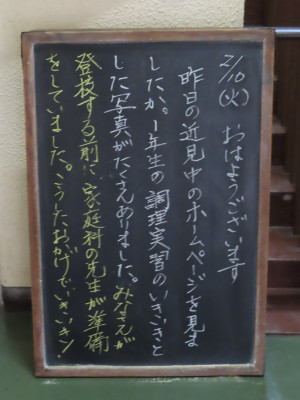 2/10(火) おはようございます
昨日の近見中のホームページを見ま
したか。1年生の調理実習のいきいきと
した写真がたくさんありました。みなさんが
登校する前に、家庭科の先生が準備
をしていました。そのおかげでいきいき!